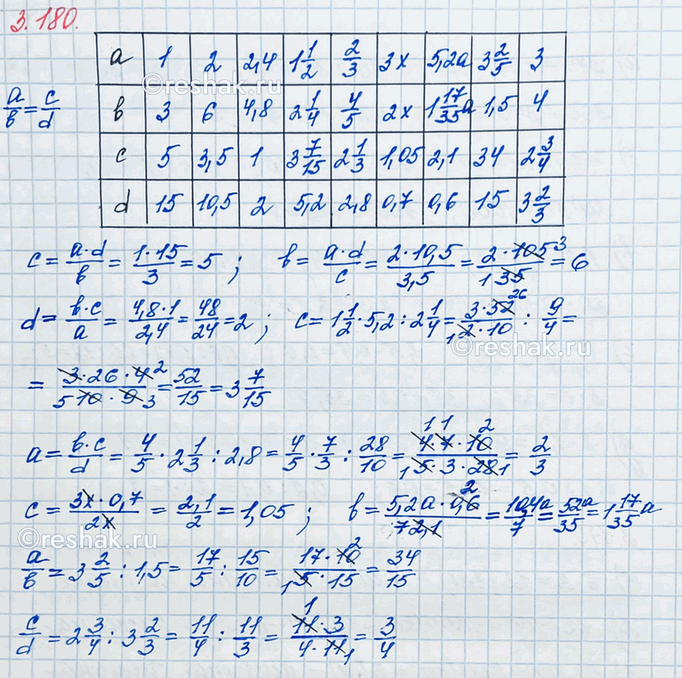 3.180.
a/b = c/d
a 1 2 2,4 1 1/2 2/3 3x 5,2a 3 2/5 3
b 3 6 4,8 2 1/4 4/5 2x 1 17/35 a 1,5 4
c 5 3,5 1 3 7/15 2 1/3 1,05 2,1 34 2 3/4
d 15 10,5 2 5,2 2,8 0,7 0,6 15 3 2/3
c = a·d/b = 1·15/3 = 5 ; b = a·d/c = 2·10,5/3,5 = 2·105 3/1 35 = 6
d = b·c/a = 4,8·1/2,4 = 48/24 = 2 ; c = 1 1/2 · 5,2 : 2 1/4 = 3·52 26/1 2·10 : 9/4 =
= 3·26·4 2/5 10·9 3 = 52/15 = 3 7/15
a = b·c/d = 4/5 · 2 1/3 : 2,8 = 4/5 · 7/3 : 28/10 = 1 1 2 4·7·10/1 5·3·28 1 = 2/3
c = 3x·0,7/2x = 2,1/2 = 1,05 ; b = 5,2a·0,6 2/7 2,1 = 10,4a/7 = 52a/35 = 1 17/35 a
a/b = 3 2/5 : 1,5 = 17/5 : 15/10 = 17·10 2/1 5·15 = 34/15
c/d = 2 3/4 : 3 2/3 = 11/4 : 11/3 = 1 11·3/4·11 1 = 3/4
© reshak.ru
© reshak.ru
© reshak.ru
© reshak.ru